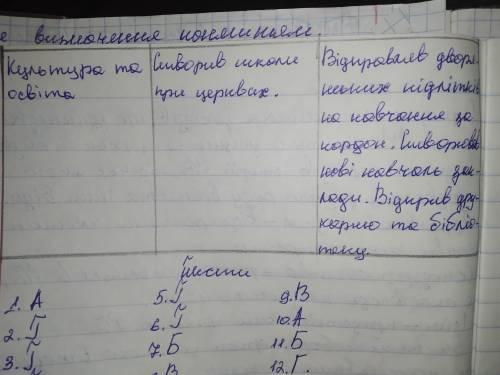 визначення поняттям.
Культура та
освіта
Створив школи
при церквах.
Відправляв дворян-
ських підлітків
на навчання за
кордон. Створював
нові навчаль зак-
лади. Відкрив дру-
карню та бібліо-
теку.
Тести
1. А
2. Г
3. Г
5. Г
6. Г
7. Б
9. В
10. А
11. Б
12. Г.